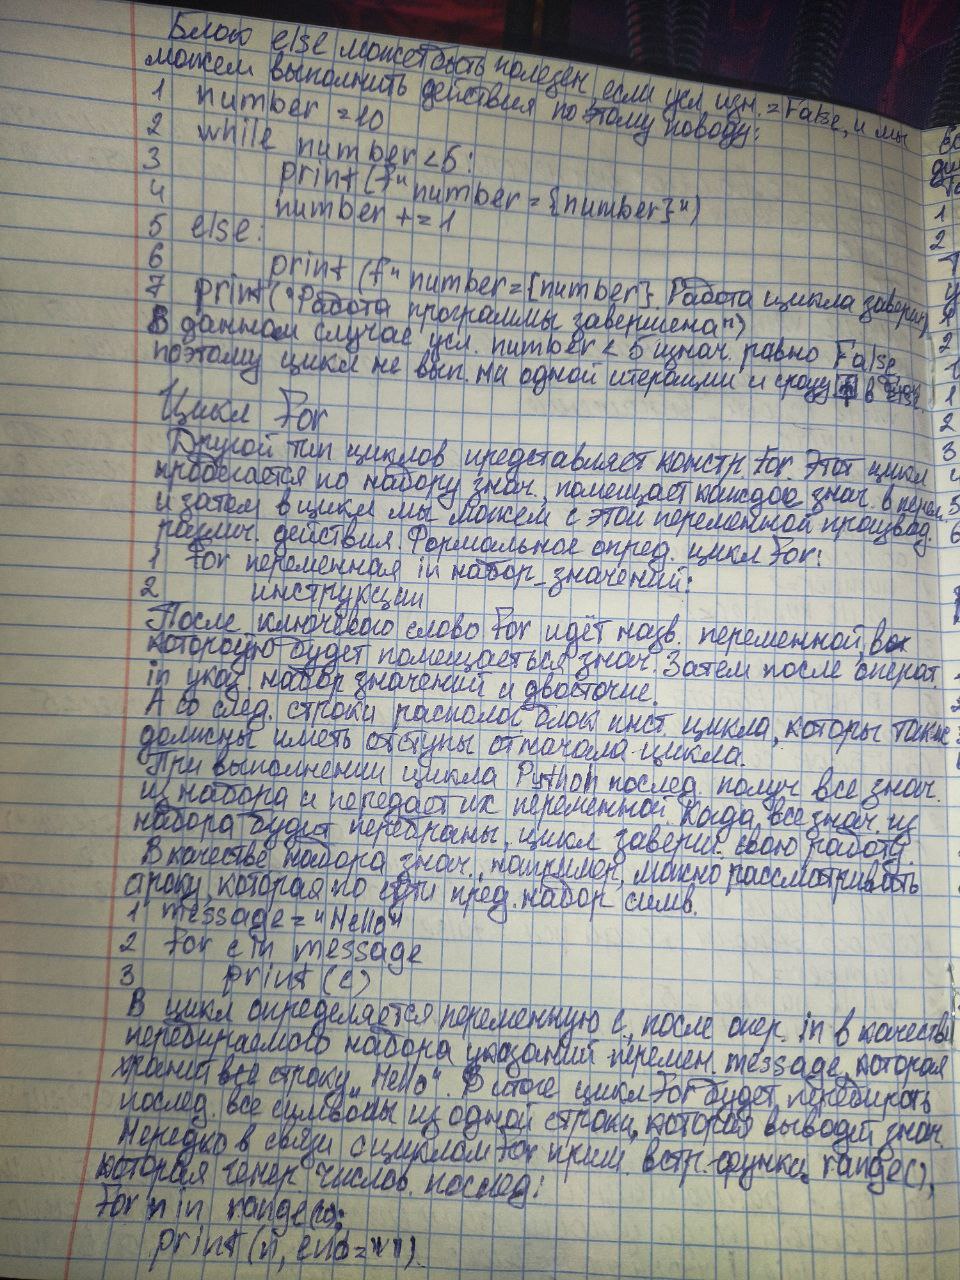 Блок else может быть полезен, если усл. изн. = False, и мы
можем выполнить действия по этому поводу:
1 number = 10
2 while number < 5:
3 print (f"number = {number}")
4 number += 1
5 else:
6 print (f"number = {number}. Работа цикла заверш")
7 print("Работа программы завершена")
В данном случае усл. number < 5 изнач. равно False,
поэтому цикл не вып. ни одной итерации и сразу в else.
Цикл For
Другой тип циклов представляет констр. For. Этот цикл
пробегается по набору знач., помещает каждое знач. в перем.
и затем в цикл мы можем с этой переменной производ.
различ. действия. Формальное опред. цикл For:
1 For переменная in набор_значений:
2 инструкции
После ключевого слово For идёт назв. переменной, в
которую будет помещаеться знач. Затем после оперот.
in указ. набор значений и двоеточие.
А со след. строки располог блок инст. цикла, которы также
должны иметь отступы от начала цикла.
При выполнении цикла Python послед. получ все знач.
из набора и передает их переменной. Когда все знач. из
набора будут перебраны, цикл заверш. свою работу.
В качестве набора знач., например, можно рассмотривать
сроку, которая по сути пред. набор симв.
1 message = "Hello"
2 For c in message
3 print (c)
В цикл определяется переменную c, после опер. in в качестве
перебираемого набора указаний перемен. message, которая
хранит все строку „Hello". В итоге цикл For будет перебирать
послед. все символы из одной строки, которая выводит знач.
Нередко в связи с циклом For прим. встр. функц. range(),
которая генер. числов. послед:
For n in range(10):
print (n, end=" ")